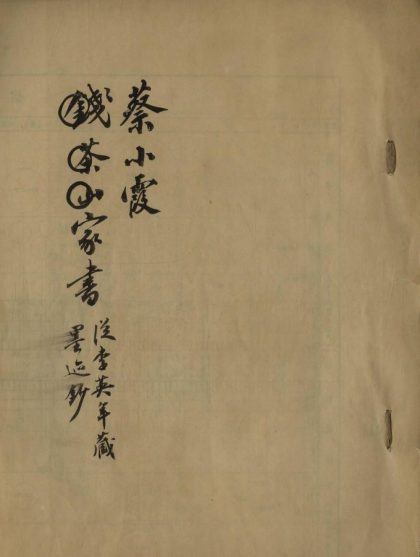 蔡小霞
錢茶山家書
從李英年藏
墨迹鈔